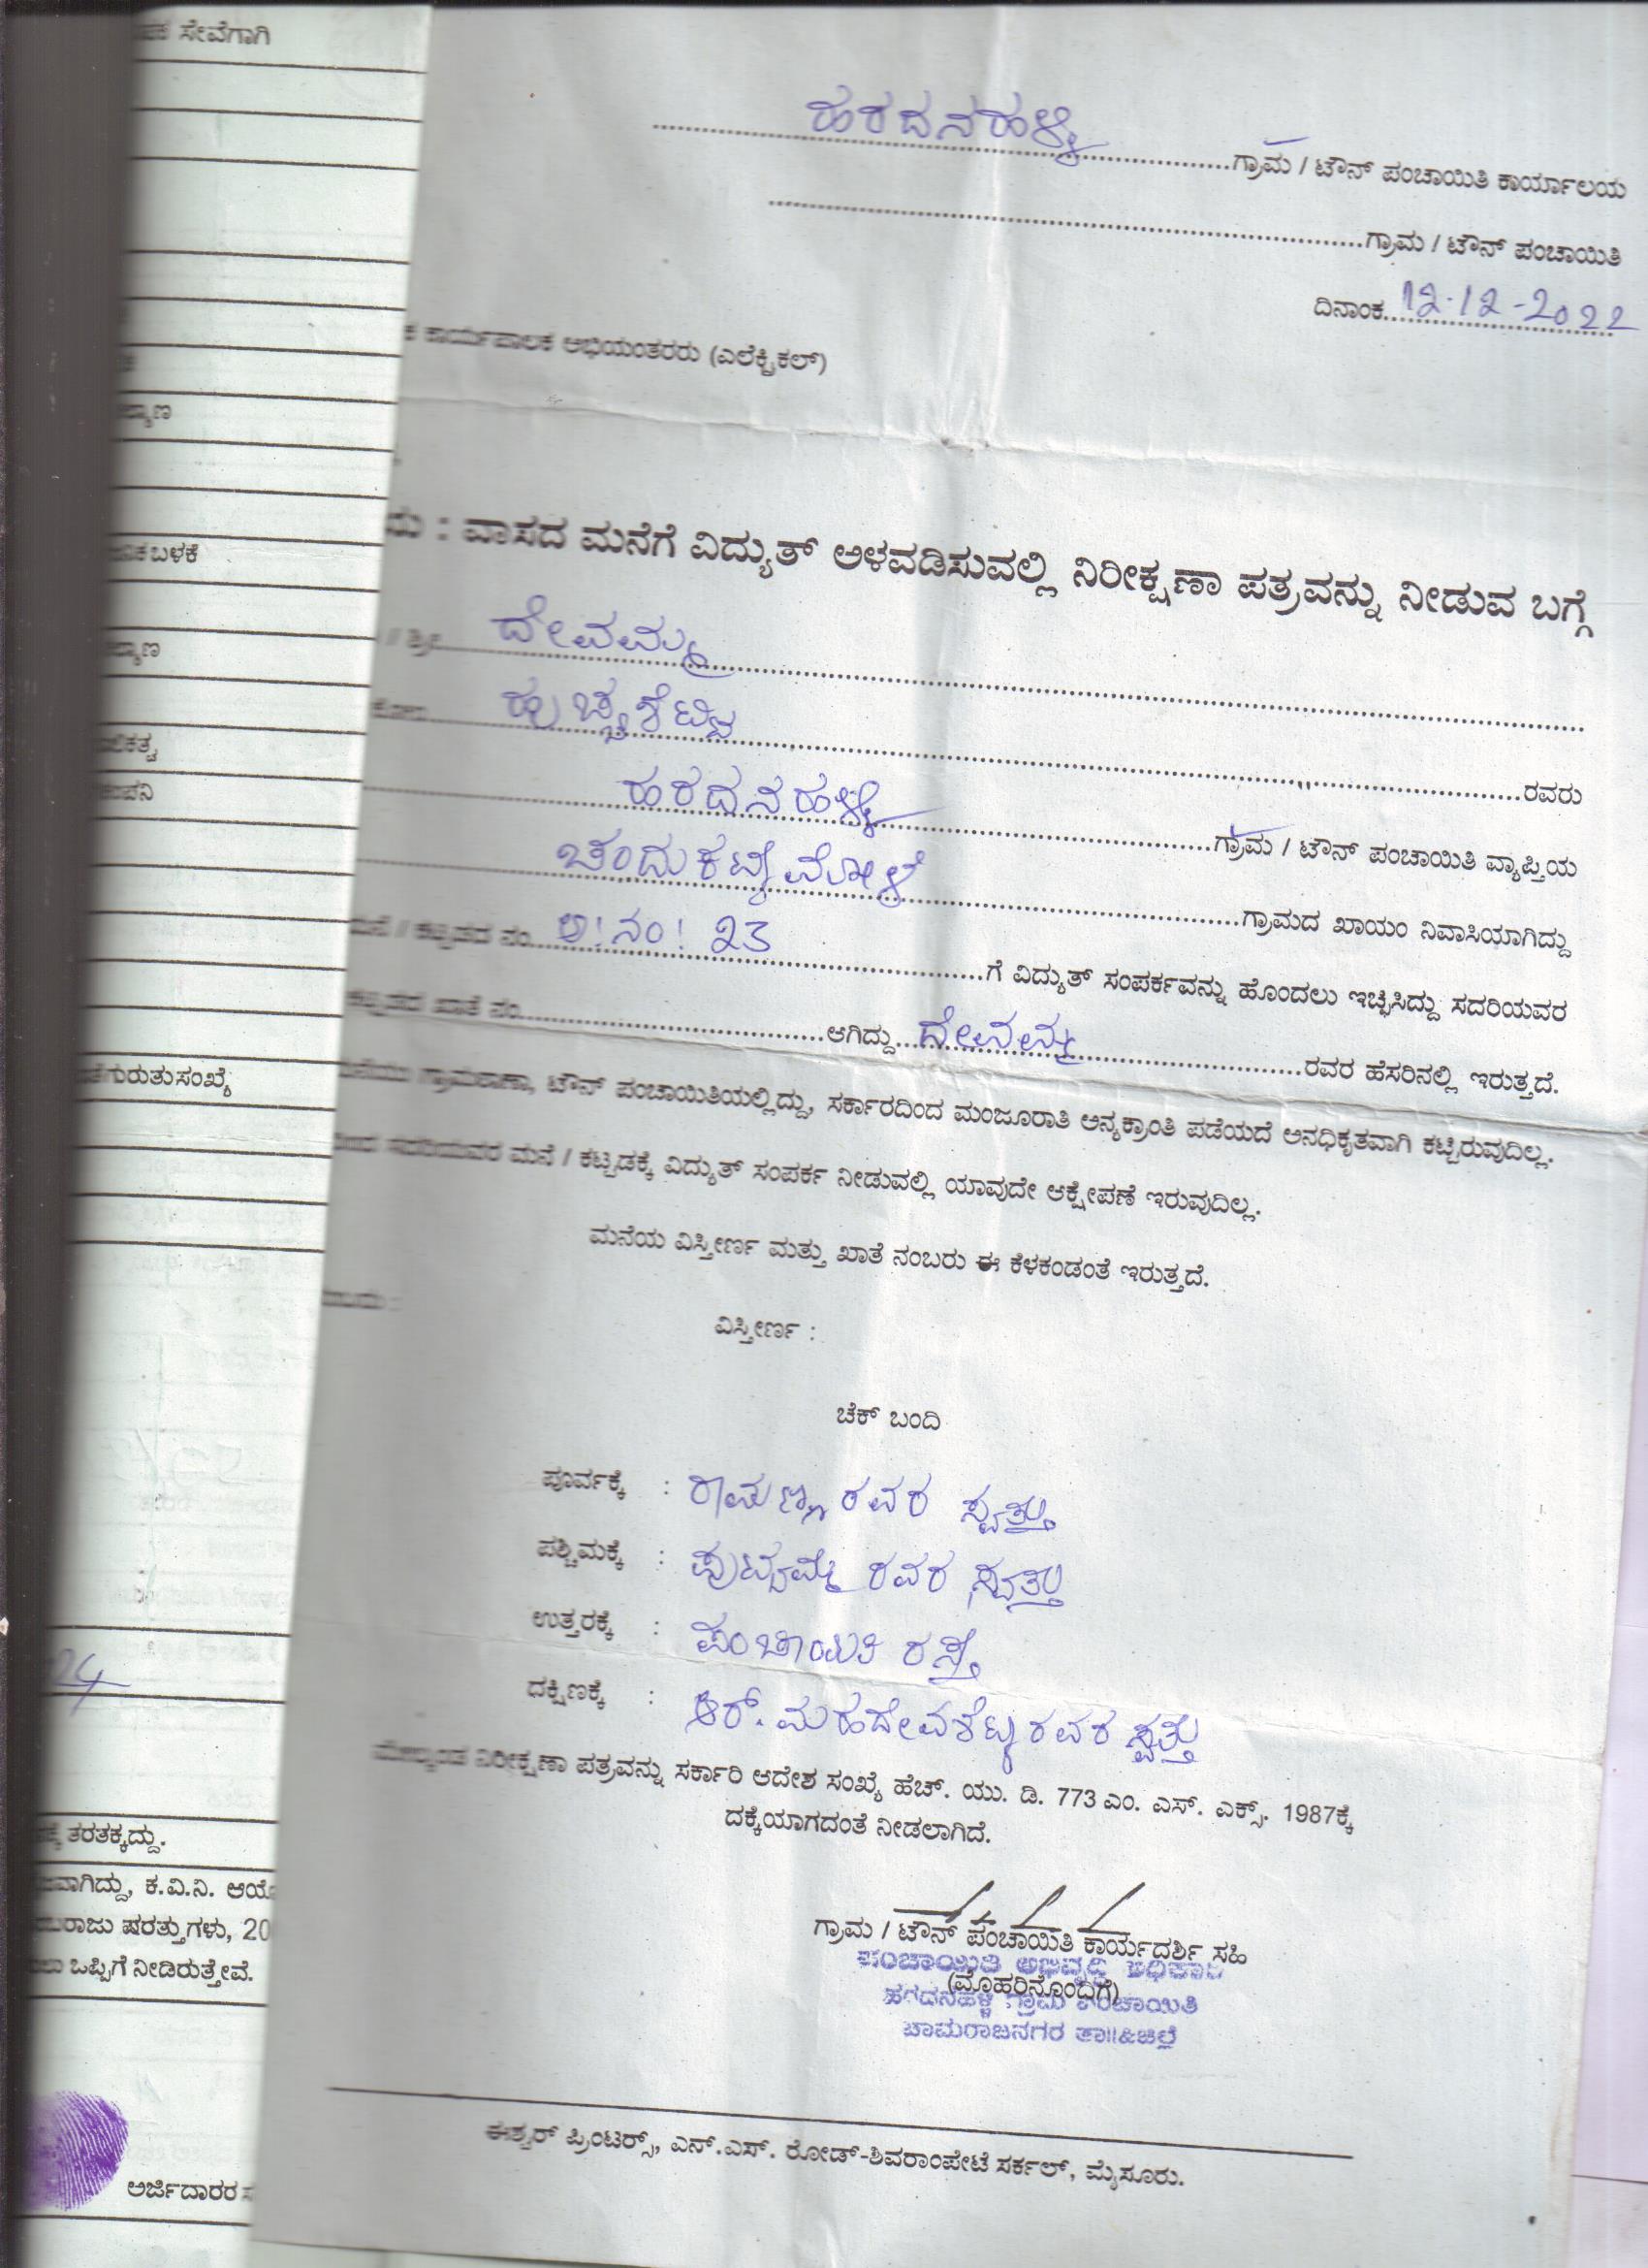 ಸೇವೆಗಾಗಿ
ಹರದನಹಳ್ಳಿ ಗ್ರಾಮ / ಟೌನ್ ಪಂಚಾಯಿತಿ ಕಾರ್ಯಾಲಯ
ಗ್ರಾಮ / ಟೌನ್ ಪಂಚಾಯಿತಿ
ದಿನಾಂಕ 12-12-2022
ಕಾರ್ಯಪಾಲಕ ಅಭಿಯಂತರರು (ಎಲೆಕ್ಟ್ರಿಕಲ್)
: ವಾಸದ ಮನೆಗೆ ವಿದ್ಯುತ್ ಅಳವಡಿಸುವಲ್ಲಿ ನಿರೀಕ್ಷಣಾ ಪತ್ರವನ್ನು ನೀಡುವ ಬಗ್ಗೆ
/ ಶ್ರೀ ದೇವಮ್ಮ
ಕೋಂ ಹುಚ್ಚಶೆಟ್ಟಿ ರವರು
ಹರದನಹಳ್ಳಿ ಗ್ರಾಮ / ಟೌನ್ ಪಂಚಾಯಿತಿ ವ್ಯಾಪ್ತಿಯ
ಚಂದುಕಟ್ಟೆಮೋಳೆ ಗ್ರಾಮದ ಖಾಯಂ ನಿವಾಸಿಯಾಗಿದ್ದು
ಮನೆ / ಕಟ್ಟಡದ ನಂ ಅ! ನಂ! 23 ಗೆ ವಿದ್ಯುತ್ ಸಂಪರ್ಕವನ್ನು ಹೊಂದಲು ಇಚ್ಛಿಸಿದ್ದು ಸದರಿಯವರ
ಕಟ್ಟಡದ ಖಾತೆ ನಂ. ಆಗಿದ್ದು ದೇವಮ್ಮ ರವರ ಹೆಸರಿನಲ್ಲಿ ಇರುತ್ತದೆ.
ಮನೆಯು ಗ್ರಾಮಠಾಣಾ, ಟೌನ್ ಪಂಚಾಯಿತಿಯಲ್ಲಿದ್ದು, ಸರ್ಕಾರದಿಂದ ಮಂಜೂರಾತಿ ಅನ್ಯಕ್ರಾಂತಿ ಪಡೆಯದೆ ಅನಧಿಕೃತವಾಗಿ ಕಟ್ಟಿರುವುದಿಲ್ಲ.
ಸದರಿಯವರ ಮನೆ / ಕಟ್ಟಡಕ್ಕೆ ವಿದ್ಯುತ್ ಸಂಪರ್ಕ ನೀಡುವಲ್ಲಿ ಯಾವುದೇ ಆಕ್ಷೇಪಣೆ ಇರುವುದಿಲ್ಲ.
ಮನೆಯ ವಿಸ್ತೀರ್ಣ ಮತ್ತು ಖಾತೆ ನಂಬರು ಈ ಕೆಳಕಂಡಂತೆ ಇರುತ್ತದೆ.
ವಿಸ್ತೀರ್ಣ :
ಚೆಕ್ ಬಂದಿ
ಪೂರ್ವಕ್ಕೆ : ರಾಮಣ್ಣ ರವರ ಸ್ವತ್ತು
ಪಶ್ಚಿಮಕ್ಕೆ : ಪುಟ್ಟಮ್ಮ ರವರ ಸ್ವತ್ತು
ಉತ್ತರಕ್ಕೆ : ಪಂಚಾಯಿತಿ ರಸ್ತೆ
ದಕ್ಷಿಣಕ್ಕೆ : ಆರ್. ಮಹದೇವಶೆಟ್ಟಿ ರವರ ಸ್ವತ್ತು
ಮೇಲ್ಕಂಡ ನಿರೀಕ್ಷಣಾ ಪತ್ರವನ್ನು ಸರ್ಕಾರಿ ಆದೇಶ ಸಂಖ್ಯೆ ಹೆಚ್. ಯು. ಡಿ. 773 ಎಂ. ಎಸ್. ಎಕ್ಸ್. 1987ಕ್ಕೆ
ದಕ್ಕೆಯಾಗದಂತೆ ನೀಡಲಾಗಿದೆ.
ಗ್ರಾಮ / ಟೌನ್ ಪಂಚಾಯಿತಿ ಕಾರ್ಯದರ್ಶಿ ಸಹಿ
ಪಂಚಾಯಿತಿ ಅಭಿವೃದ್ಧಿ ಅಧಿಕಾರಿ
(ಮೊಹರಿನೊಂದಿಗೆ)
ಹರದನಹಳ್ಳಿ ಗ್ರಾಮ ಪಂಚಾಯಿತಿ
ಚಾಮರಾಜನಗರ ತಾ||&ಜಿಲ್ಲೆ
ಈಶ್ವರ್ ಪ್ರಿಂಟರ್ಸ್, ಎನ್.ಎಸ್. ರೋಡ್-ಶಿವರಾಂಪೇಟೆ ಸರ್ಕಲ್, ಮೈಸೂರು.
ಗುರುತು ಸಂಖ್ಯೆ
ತರತಕ್ಕದ್ದು.
ಕ.ವಿ.ನಿ.
ಷರತ್ತುಗಳು, 20
ಒಪ್ಪಿಗೆ ನೀಡಿರುತ್ತೇವೆ.
ಅರ್ಜಿದಾರರ